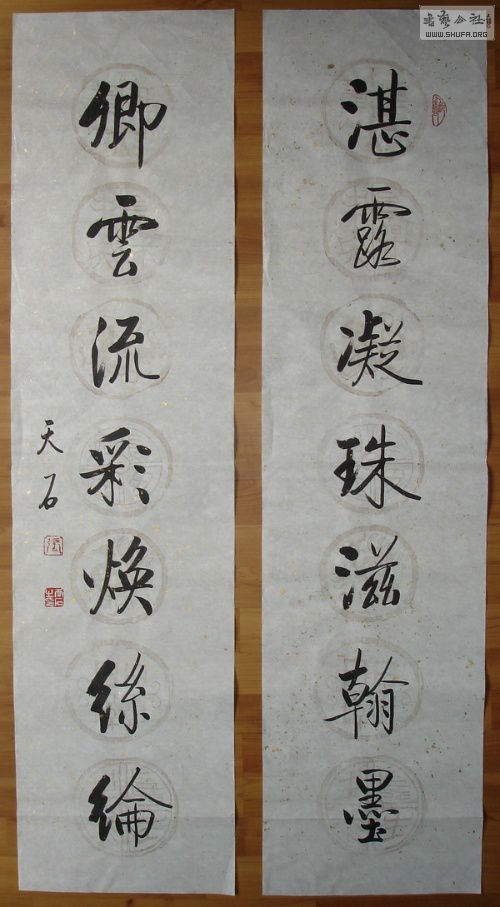 湛露凝珠滋翰墨
卿雲流彩焕絲綸
天石
書藝公社
WWW.SHUFA.ORG